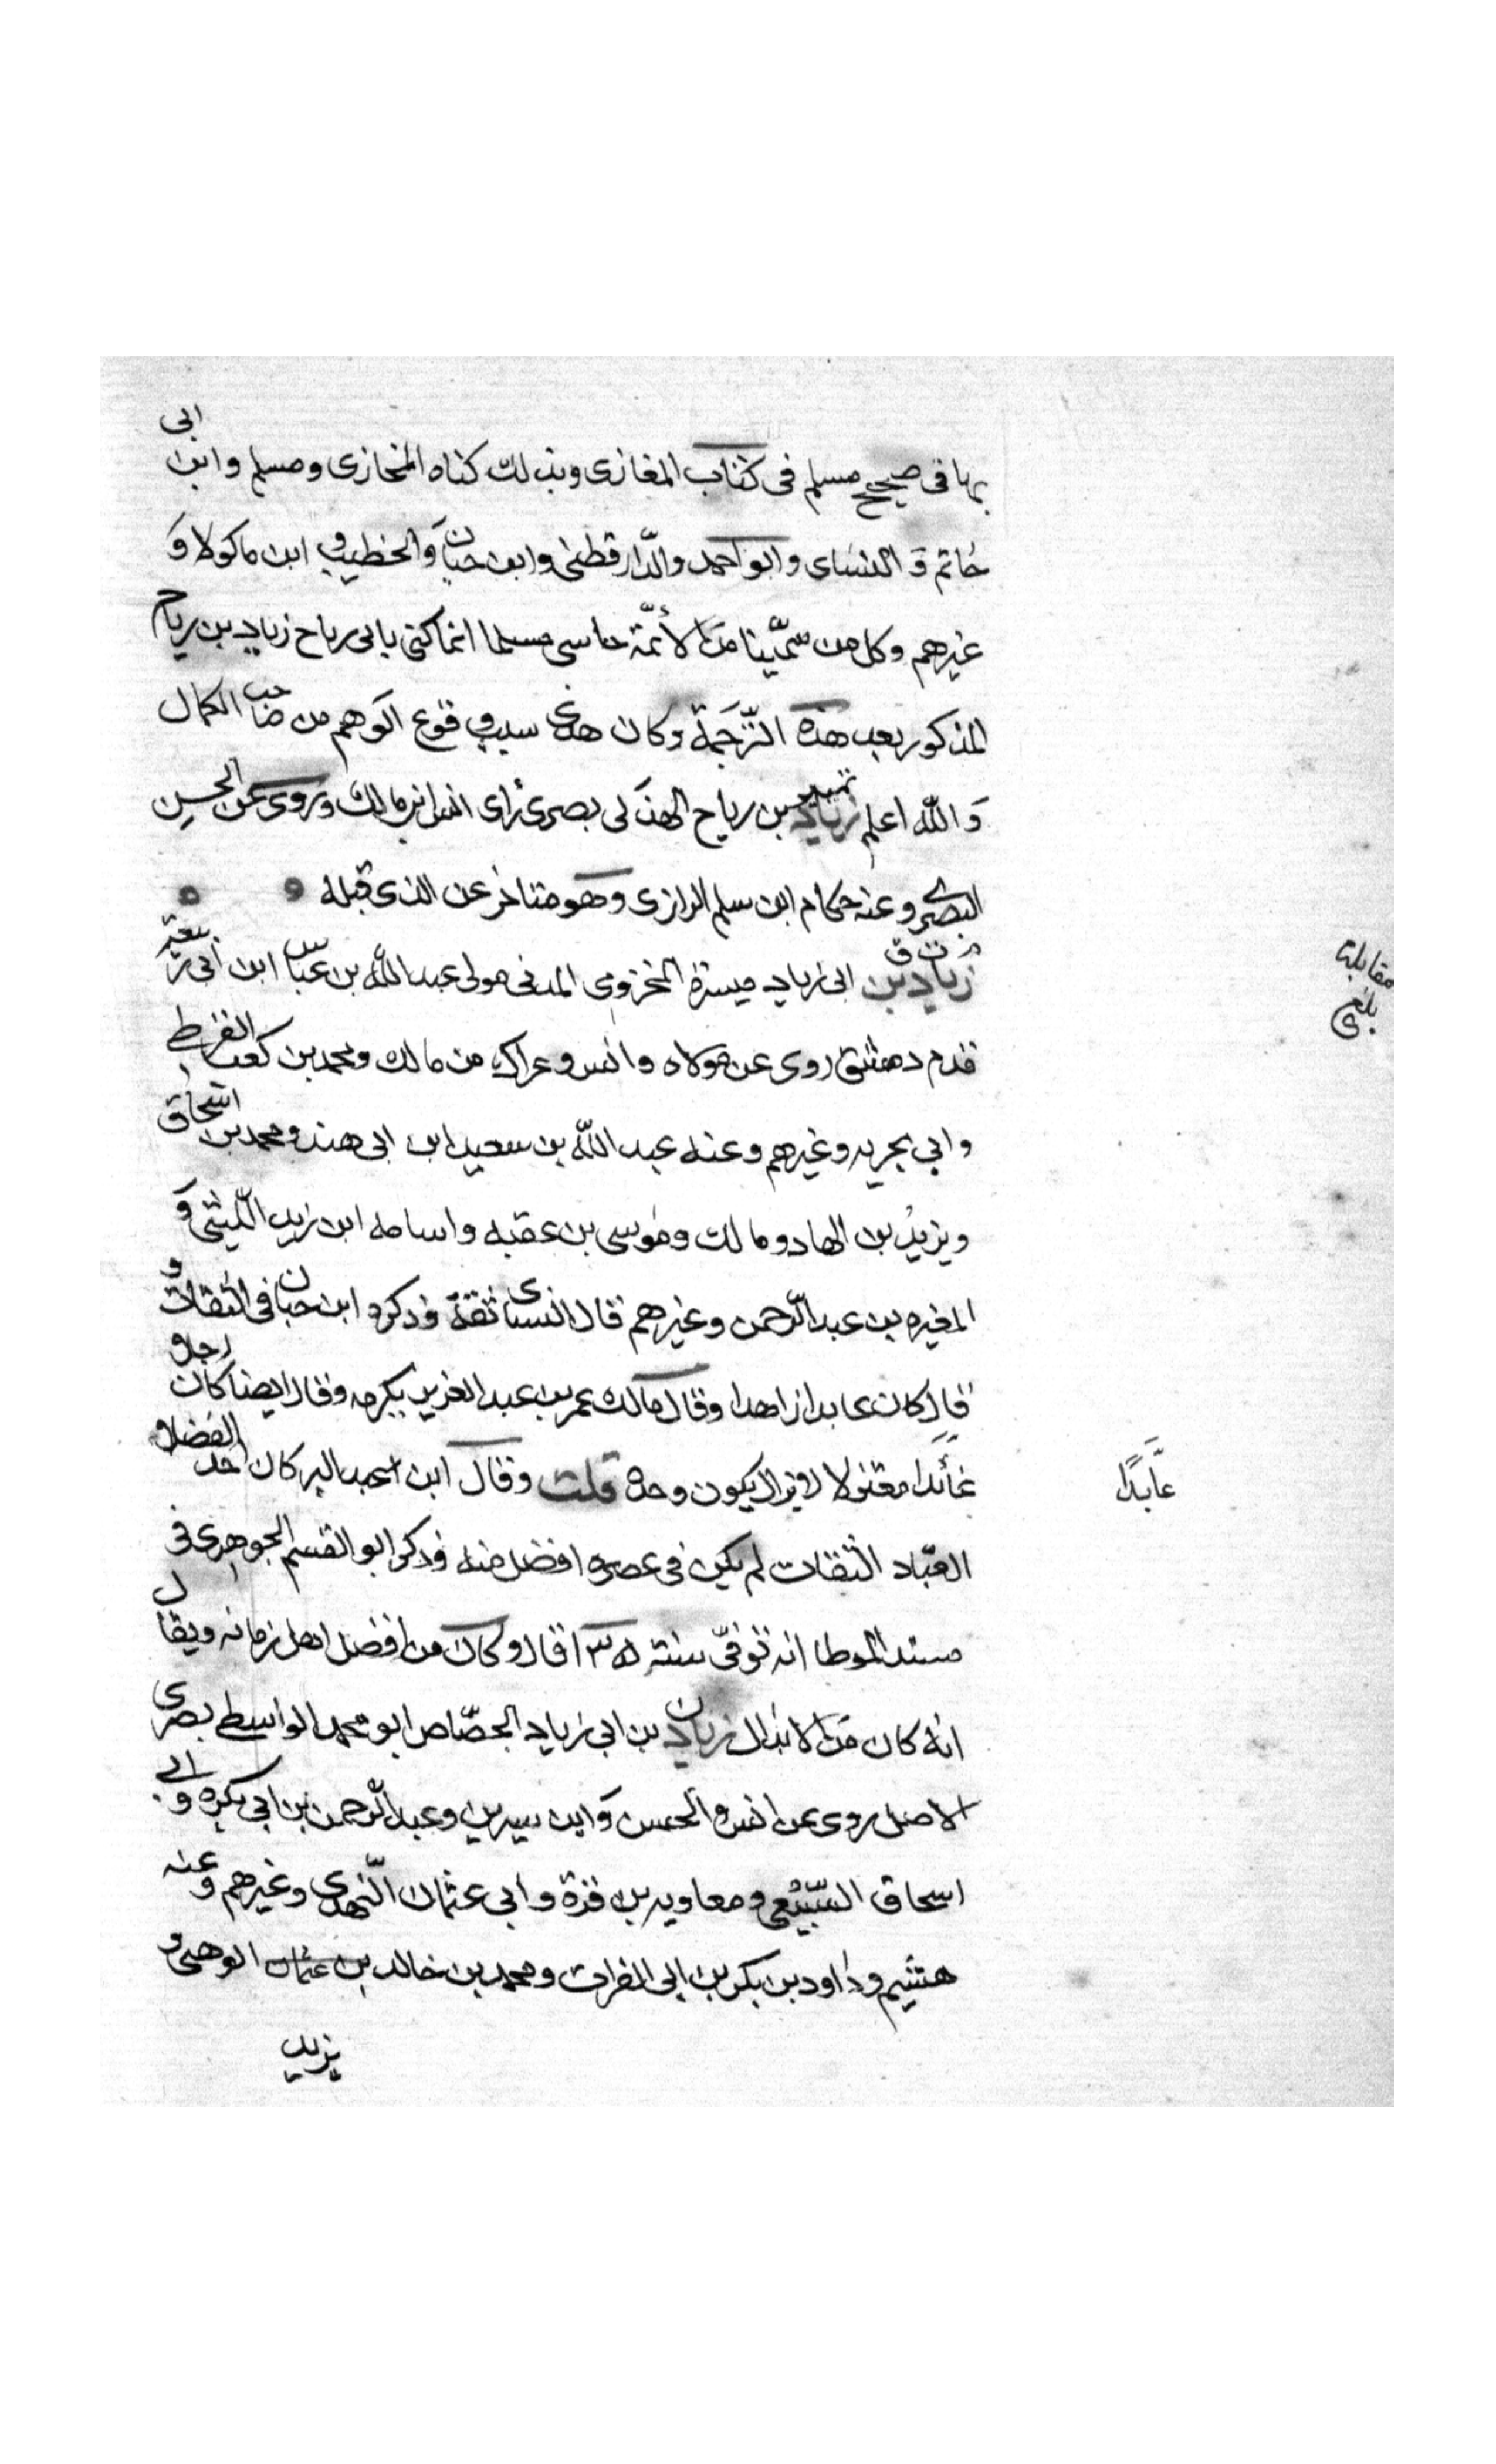 بها فى صحيح مسلم فى كتاب المغازى وبذلك كناه البخازى ومسلم وابن ابى
حاتم و النساى وابو احمد والدّارقطنى وابن حبان والخطيب و ابن ماكولا وَ
غيرهم وكل من سمّينا من الأئمّة حاسى مسلما انما كنى بابى رياح زياد بن رياح
المذكور بعد هذه التّرجَمة وكان هذا سبب وقوع الوهم من صاحب الكمال
وَالله اعلم تمييز زياد بن رياح الهذلى بصرى رَاى انس ابن مالك وروى عن الحسن
البصرى وعنه حكام ابن سلم الرازى وهو متاخر عن الذى قبله
م ت ق
زياد بن ابى زياد ميسرة المخزومى المدنى مولى عبد الله بن عباس ابن ابى ربيعة
قدم دمشق روى عن مولاه وانس وعراك من مالك ومحمد بن كعب القرظى
وابى بحريه وغيرهم وعنه عبد الله بن سعيد ابن ابى هند ومحمد بن اسحاق
ويزيد بن الهاد ومالك ومُوسى بن عقبه واسامه ابن زيد اللّيثى وَ
المغيره بن عبد الرّحمن وغيرهم قال النساى ثقة وذكره ابن حبان فى الثقات و
قال كان عابدا زاهدا وقال مالك عمر بن عبد العزيز يكرمه وقال ايضا كان رجلا
عَابدا معتزلا لا يزال يكون وحده قلت وقال ابن عبد البر كان احد الفضلاء
العبّاد الثقات لم يكن فى عصره افضل منه وذكر ابو القسم الجوهرى فى
مسند الموطا انه توفىّ سنة ١٣٥ قال وكان من افضل اهل زمانه ويقال
انه كان من الابدال زياد بن ابى زياد الجصّاص ابو محمد الواسطى بصرى
الاصل روى عن انس والحسن وَابن سيرين وعبد الرّحمن بن ابى بكره وابى
اسحاق السّبيْعى ومعاويه بن قرة وابى عثمان النّهدى وغيرهم وعنه
هشيم وداود بن بكر بن ابى الفرات ومحمد بن خالد بن عثمان الوهبى و
يزيد
مقابلة
بلغ
عَابدًا